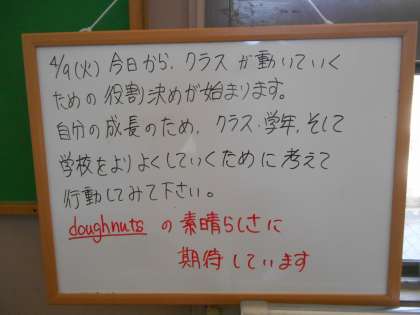 4/9(火) 今日から、クラスが動いていく
ための役割決めが始まります。
自分の成長のため、クラス・学年、そして
学校をよりよくしていくために考えて
行動してみて下さい。
doughnuts の素晴らしさに
期待しています